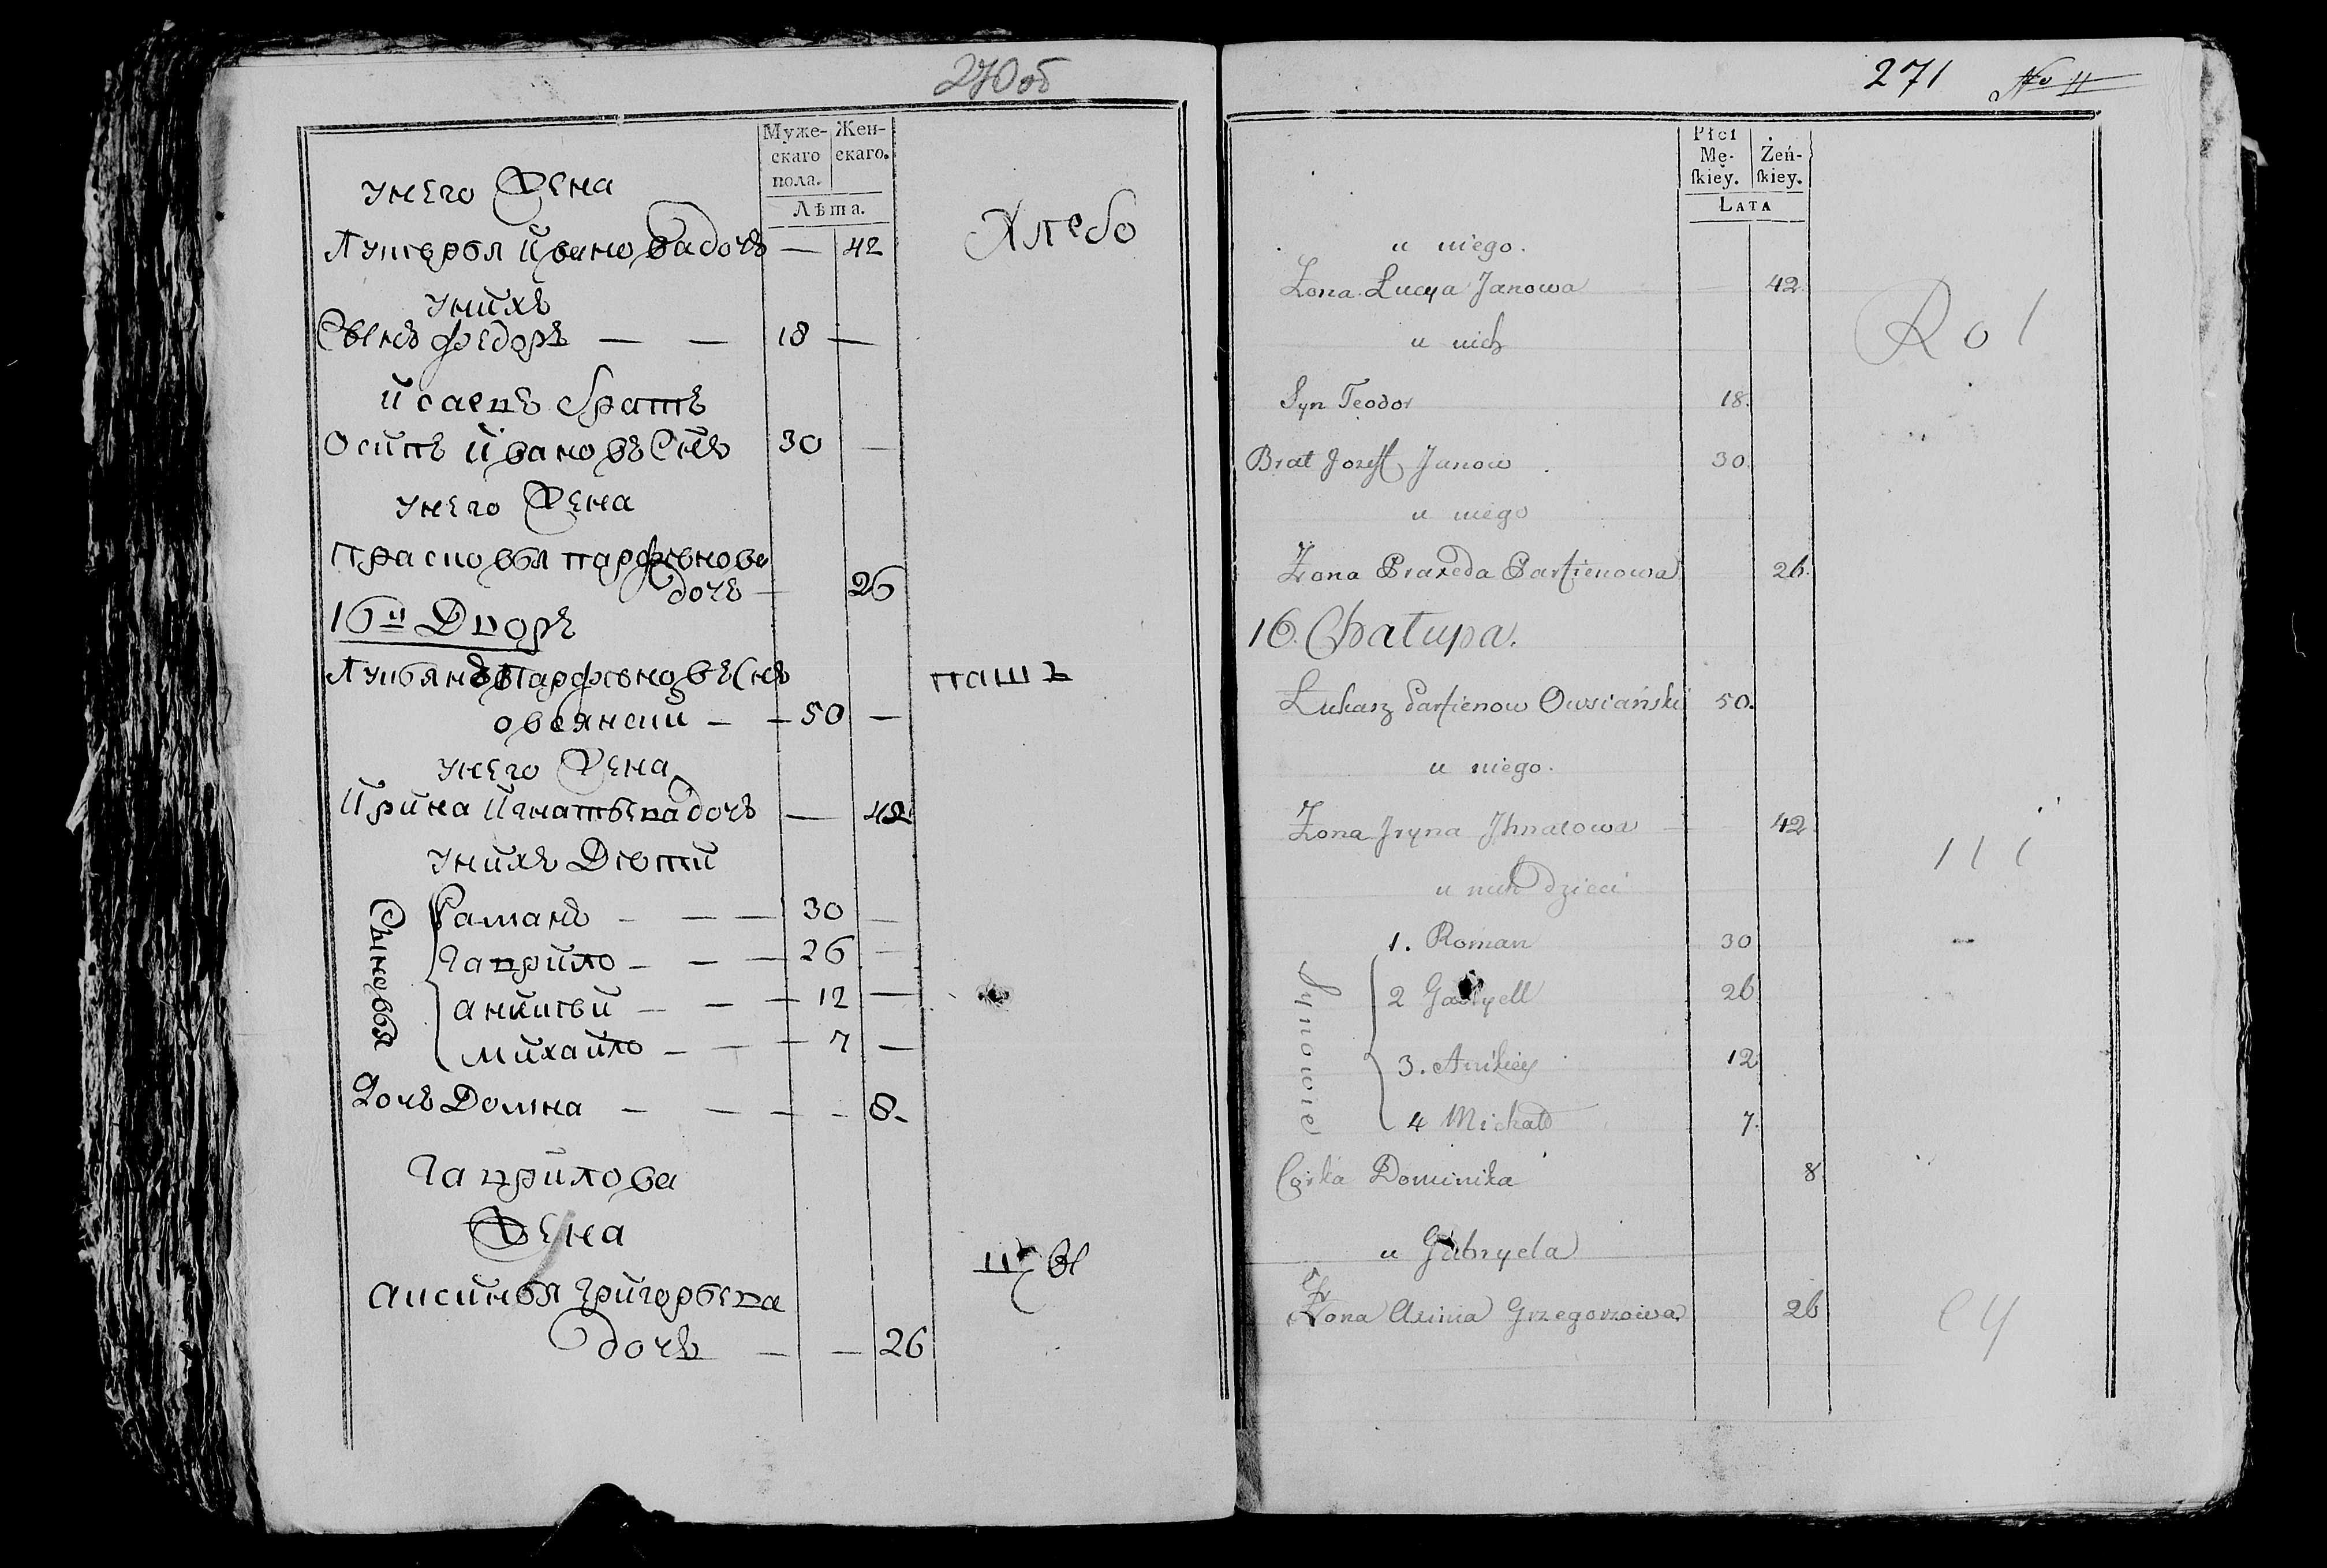 270об
Муже-
скаго
пола.
Жен-
скаго.
Лѣта.
унего Жена
Лукеръя Иванова дочъ — 42
Хлебо
унихъ
Сынъ федоръ — — 18 —
Исаевъ братъ
Осипъ Ивановъ Снъ 30 —
унего Жена
Прасковья парфѣнова
дочъ — 26
16й Дворъ
Лукьянъ Парфѣновъ Снъ
пашъ
овсянкий — — 50 —
унего Жена
Ирина Игнатьева дочъ — 42
унихъ Дѣти
Сыновья
Раманъ — — — 30 —
Гаврило — — — 26 —
аникѣй — — — 12 —
михайло — — — 7 —
Дочъ Домна — — — - 8-
Гаврилова
Жена
аксинья Григорьева
дочъ — — 26
271 No 11
Płci
Mę-
ſkiey.
Żeń-
ſkiey.
LATA
u niego.
Żona Łucya Janowa 42.
Rol
u nich
Syn Teodor 18.
Brat Jozeff Janow 30.
u niego
Żona Praxeda Parfienowa 26.
16. Chałupa.
Łukasz Parfienow Owsiański 50.
u niego.
Żona Jryna Jhnatowa 42.
u nich dzieci
Synowie
1. Roman 30
2 Gabryell 26
3. Anikiey 12
4 Michał 7.
Corka Dominika 8
u Gabryela
Żona Axinia Grzegorzowa 26